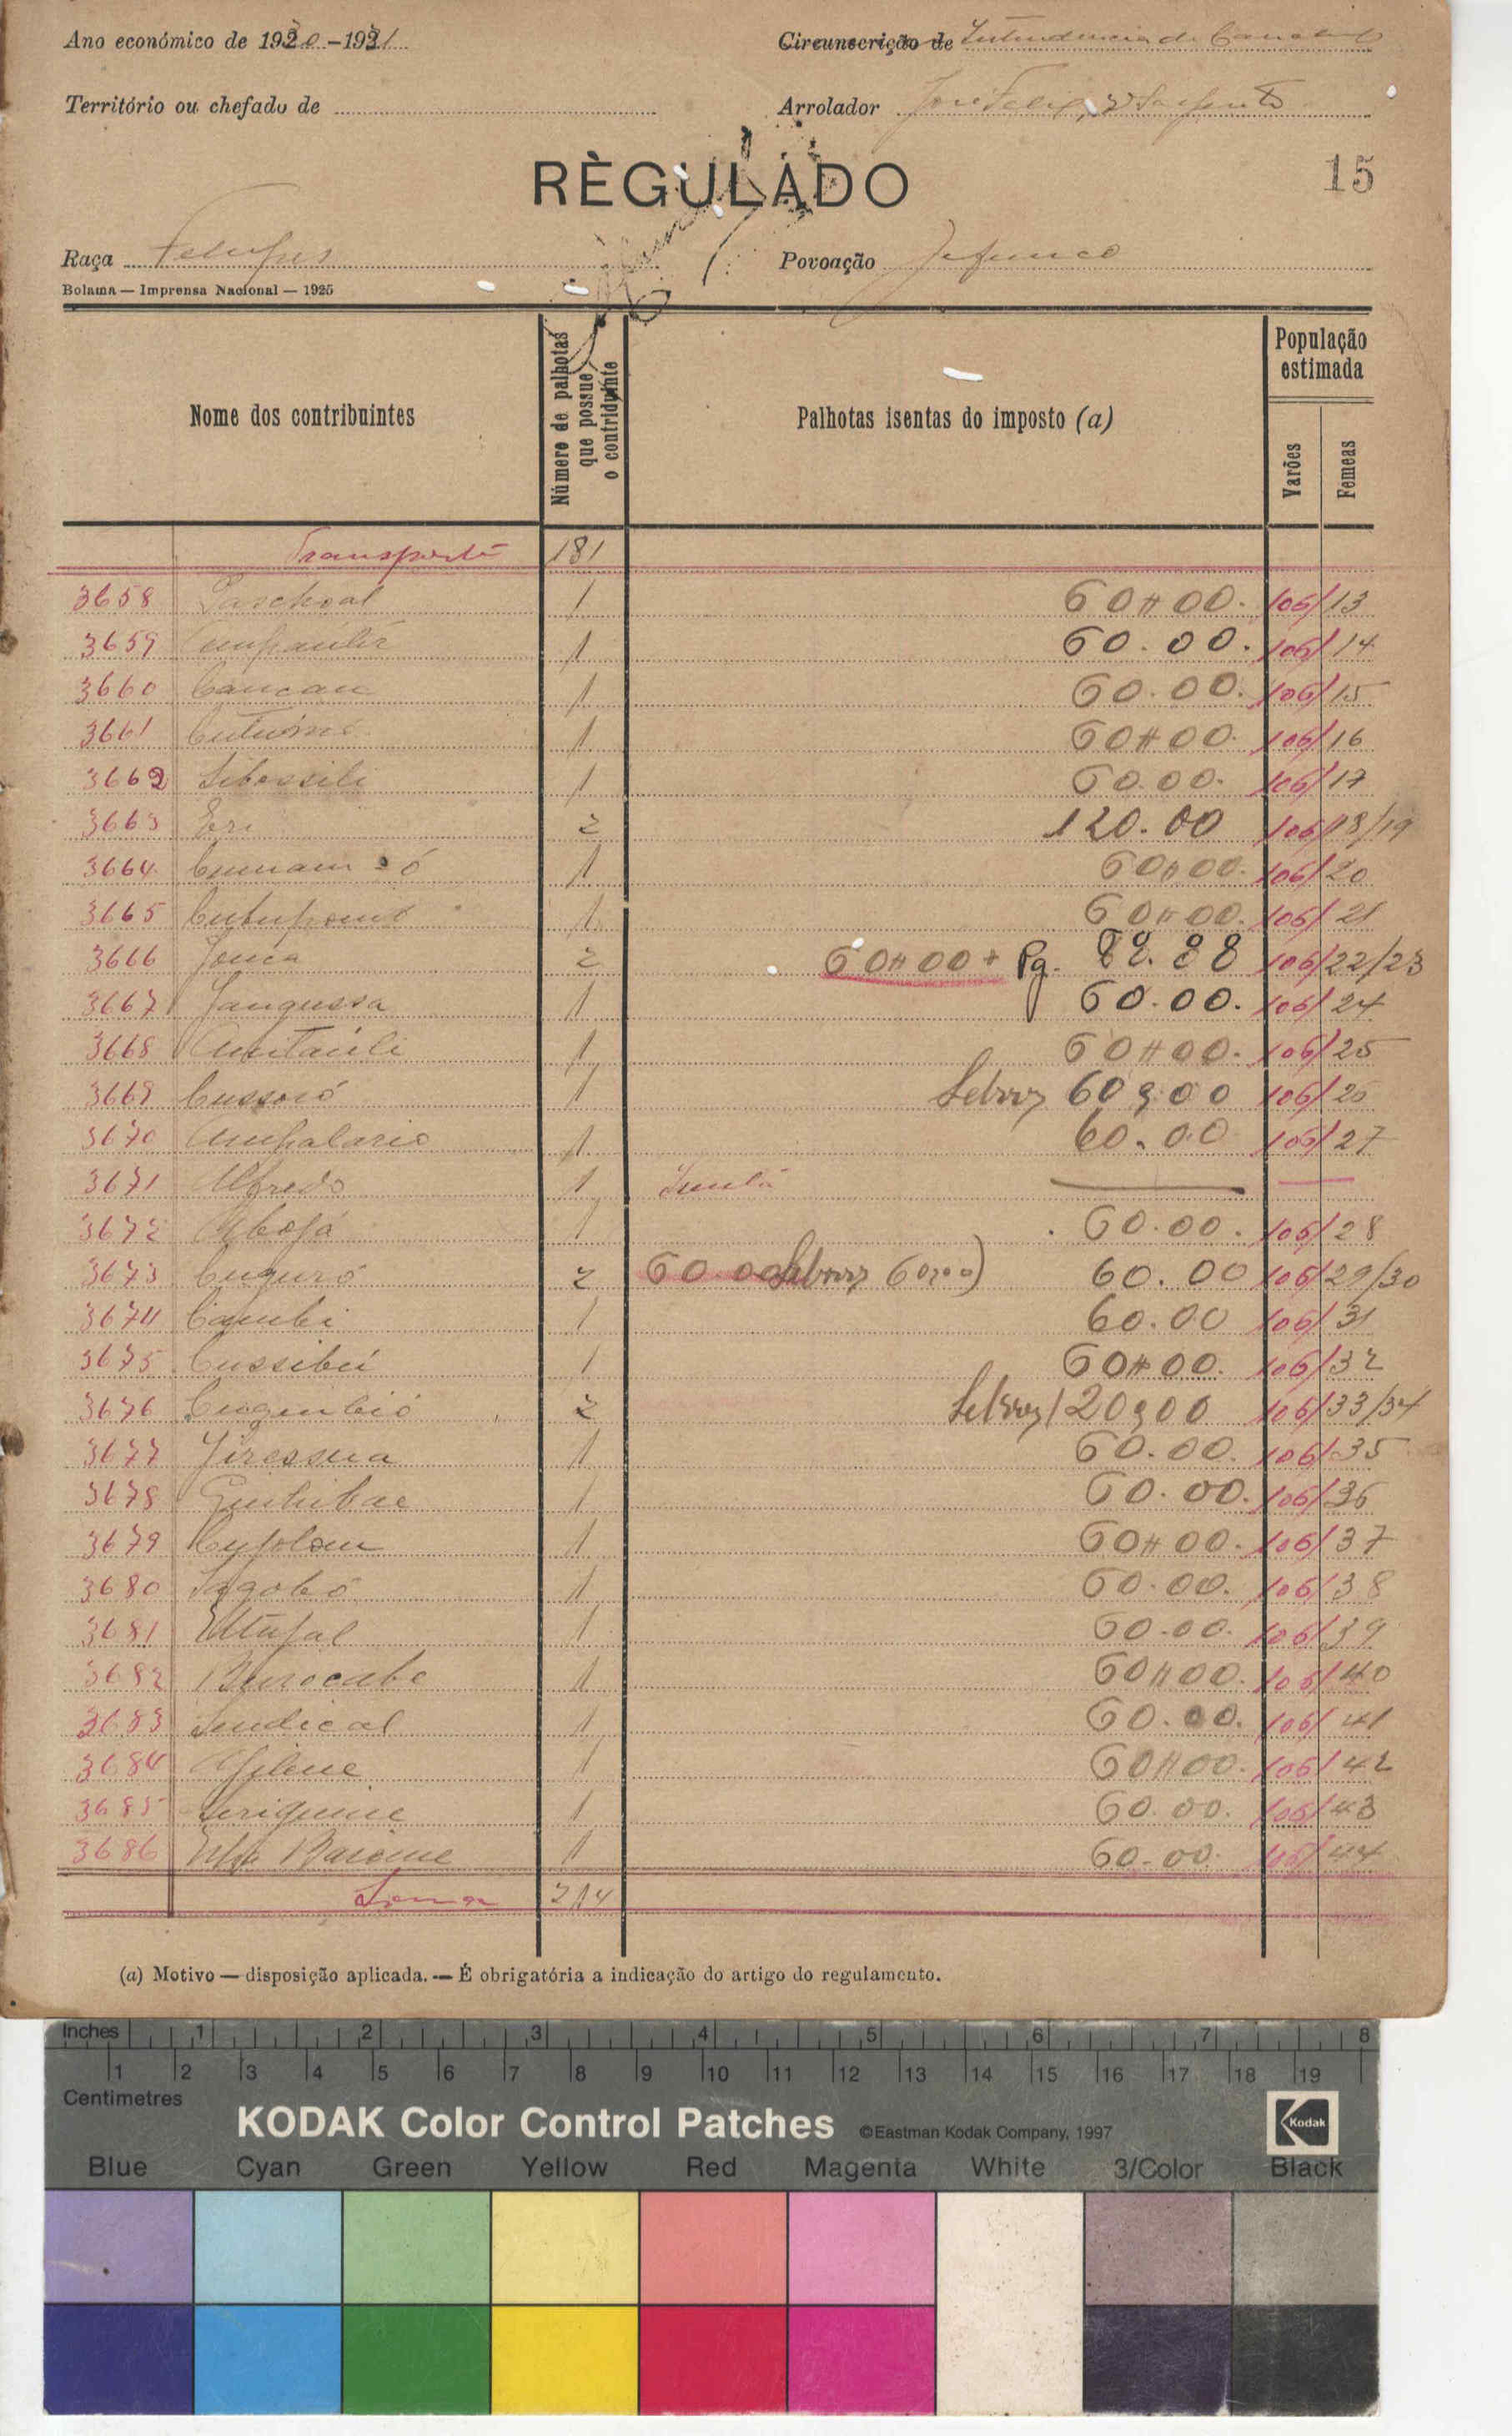 Ano económico de 1930-1931
Circunscrição de Intendencia de
Território ou chefado de
Arrolador José Felix, 2º Sargento
RÈGULADO
15
Raça Felupes
Povoação Jefunco
Bolama — Imprensa Nacional — 1925
Nome dos contribuintes
Número de palhotas que possue o contriduinte
Palhotas isentas do imposto (a)
População estimada
Varões
Femeas
Transporte 181
3658 Paschoal 1 60$00. 106/13
3659 1 60.00. 106/14
3660 Cancan 1 60.00. 106/15
3661 1 60$00. 106/16
3662 Sibessili 1 60.00. 106/17
3663 Eri 2 120.00 106/18/19
3664 1 60$00. 106/20
3665 1 60$00. 106/21
3666 Jouca 2 60$00 + Pg. 82.88 106/22/23
3667 Jangussa 1 60.00. 106/24
3668 1 60$00. 106/25
3669 Cussoió 1 60$00 106/26
3670 Ampalario 1 60.00 106/27
3671 Alfredo 1
3672 Aboja 1 60.00. 106/28
3673 Cuguró 2 60.00 60$00) 60.00 106/29/30
3674 Cambi 1 60.00 106/31
3675 Cussibui 1 60$00. 106/32
3676 2 120$00 106/33/34
3677 Jiressua 1 60.00. 106/35
3678 1 60.00. 106/36
3679 1 60$00. 106/37
3680 Sagobó 1 60.00. 106/38
3681 1 60.00. 106/39
3682 Burocabe 1 60$00. 106/40
3683 Sindical 1 60.00. 106/41
3684 1 60$00. 106/42
3685 1 60.00. 106/43
3686 1 60.00. 106/44
Soma 214
(a) Motivo — disposição aplicada. — É obrigatória a indicação do artigo do regulamento.
Inches 1 2 3 4 5 6 7 8
1 2 3 4 5 6 7 8 9 10 11 12 13 14 15 16 17 18 19
Centimetres
KODAK Color Control Patches ©Eastman Kodak Company, 1997 Kodak
Blue Cyan Green Yellow Red Magenta White 3/Color Black